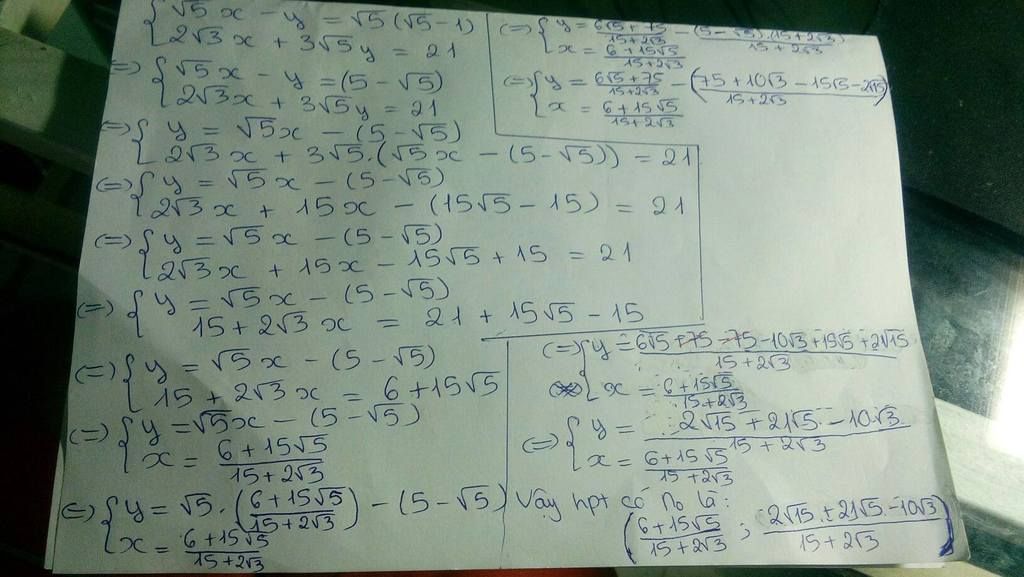 { √5x - y = √5(√5-1)
{ 2√3x + 3√5y = 21
=> { √5x - y = (5 - √5)
{ 2√3x + 3√5y = 21
=> { y = √5x - (5-√5)
{ 2√3x + 3√5.(√5x - (5-√5)) = 21
(=) { y = √5x - (5-√5)
{ 2√3x + 15x - (15√5 - 15) = 21
(=) { y = √5x - (5-√5)
{ 2√3x + 15x - 15√5 + 15 = 21
(=) { y = √5x - (5-√5)
{ 15 + 2√3x = 21 + 15√5 - 15
(=) { y = √5x - (5-√5)
{ 15 + 2√3x = 6 + 15√5
(=) { y = √5x - (5-√5)
{ x = (6+15√5)/(15+2√3)
(=) { y = √5.((6+15√5)/(15+2√3)) - (5-√5)
{ x = (6+15√5)/(15+2√3)
(=) { y = (6√5+75)/(15+2√3) - ((5-√5).(15+2√3))/(15+2√3)
{ x = (6+15√5)/(15+2√3)
(=) { y = (6√5+75)/(15+2√3) - ((75+10√3-15√5-2√15)/(15+2√3))
{ x = (6+15√5)/(15+2√3)
(=) { y = (6√5+75-75-10√3+15√5+2√15)/(15+2√3)
{ x = (6+15√5)/(15+2√3)
(=) { y = (2√15+21√5-10√3)/(15+2√3)
{ x = (6+15√5)/(15+2√3)
Vậy hpt có no là:
((6+15√5)/(15+2√3) ; (2√15+21√5-10√3)/(15+2√3))